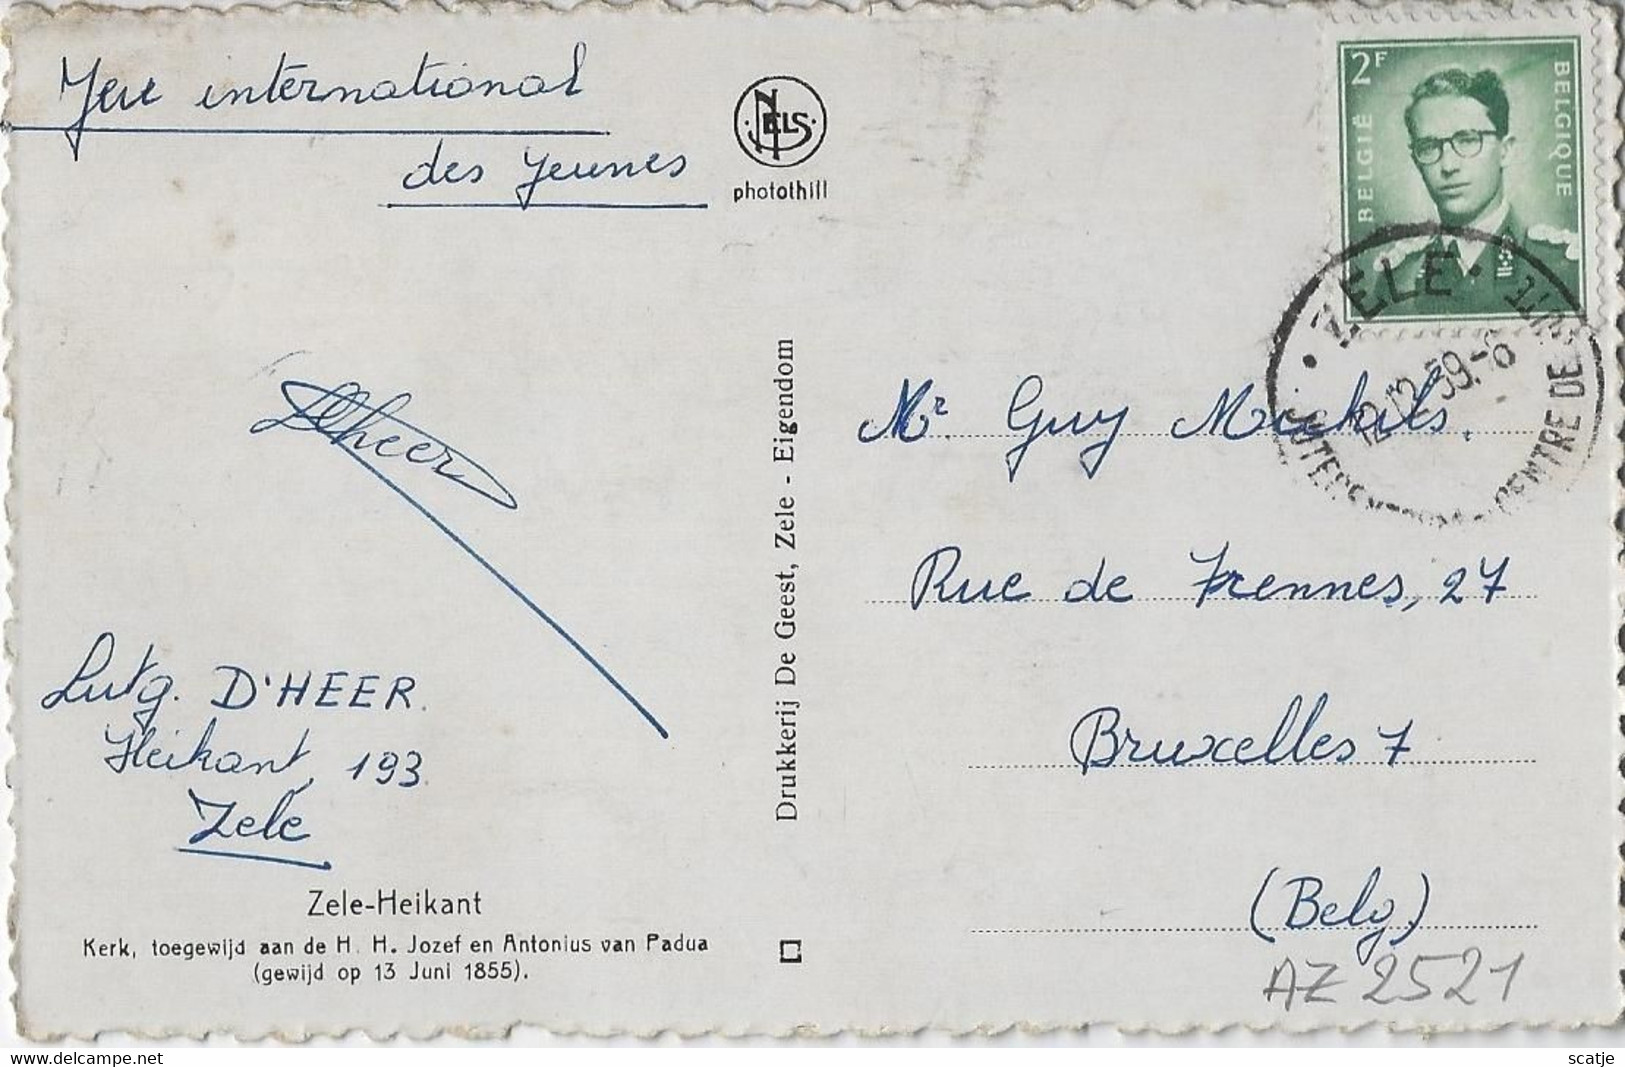 international
des jeunes
NELS
photothill
2F
BELGIË
BELGIQUE
· ZELE ·
12.12.59.-8
CENTRE DE
Dheer
Mr. Guy Michils.
Rue de Frennes, 27
Bruxelles 7
(Belg.)
AZ 2521
Drukkerij De Geest, Zele - Eigendom
Lutg. D'HEER.
Heikant, 193
Zele
Zele-Heikant
Kerk, toegewijd aan de H. H. Jozef en Antonius van Padua
(gewijd op 13 Juni 1855).
delcampe.net
scatje